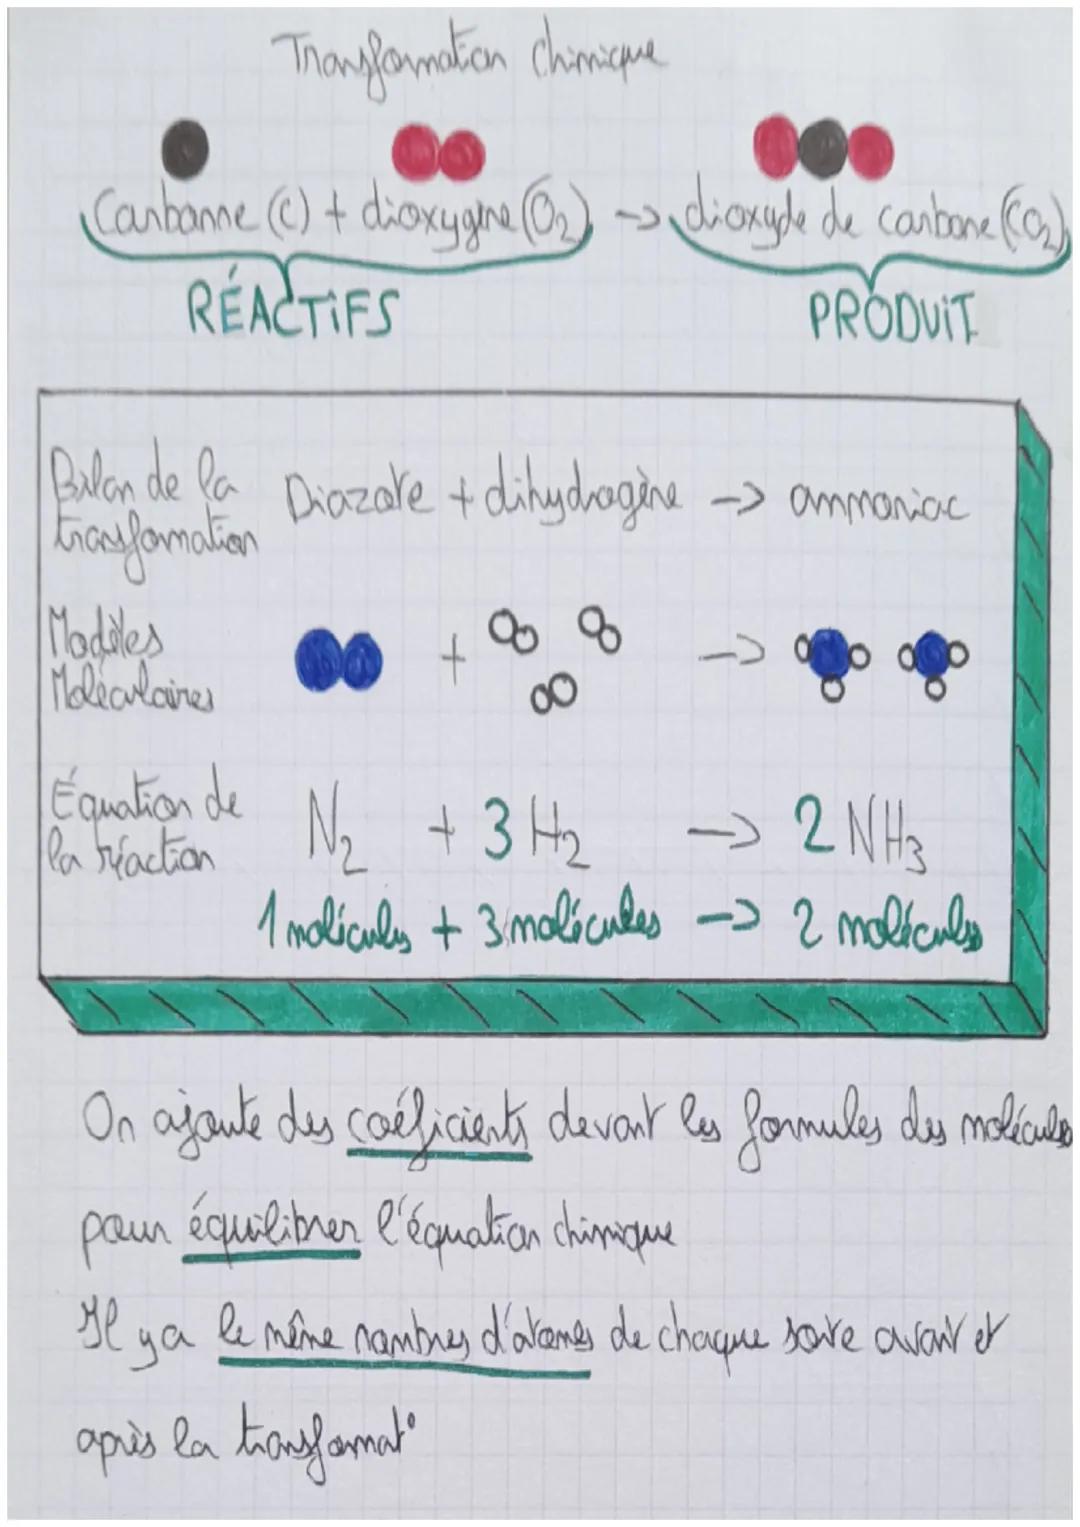 Transformation chimique
Carbonne (C) + dioxygène (O₂) -> dioxyde de carbone (CO₂)
RÉACTIFS PRODUIT
Bilan de la transformation Diazote + dihydrogène -> ammoniac
Modèles Moléculaires + ->
Équation de la réaction N₂ + 3 H₂ -> 2 NH₃
1 molécules + 3 molécules -> 2 molécules
On ajoute des coéficients devant les formules des molécules
pour équilibrer l'équation chimique
Il y a le même nombres d'atomes de chaque sorte avant et
après la transformat°